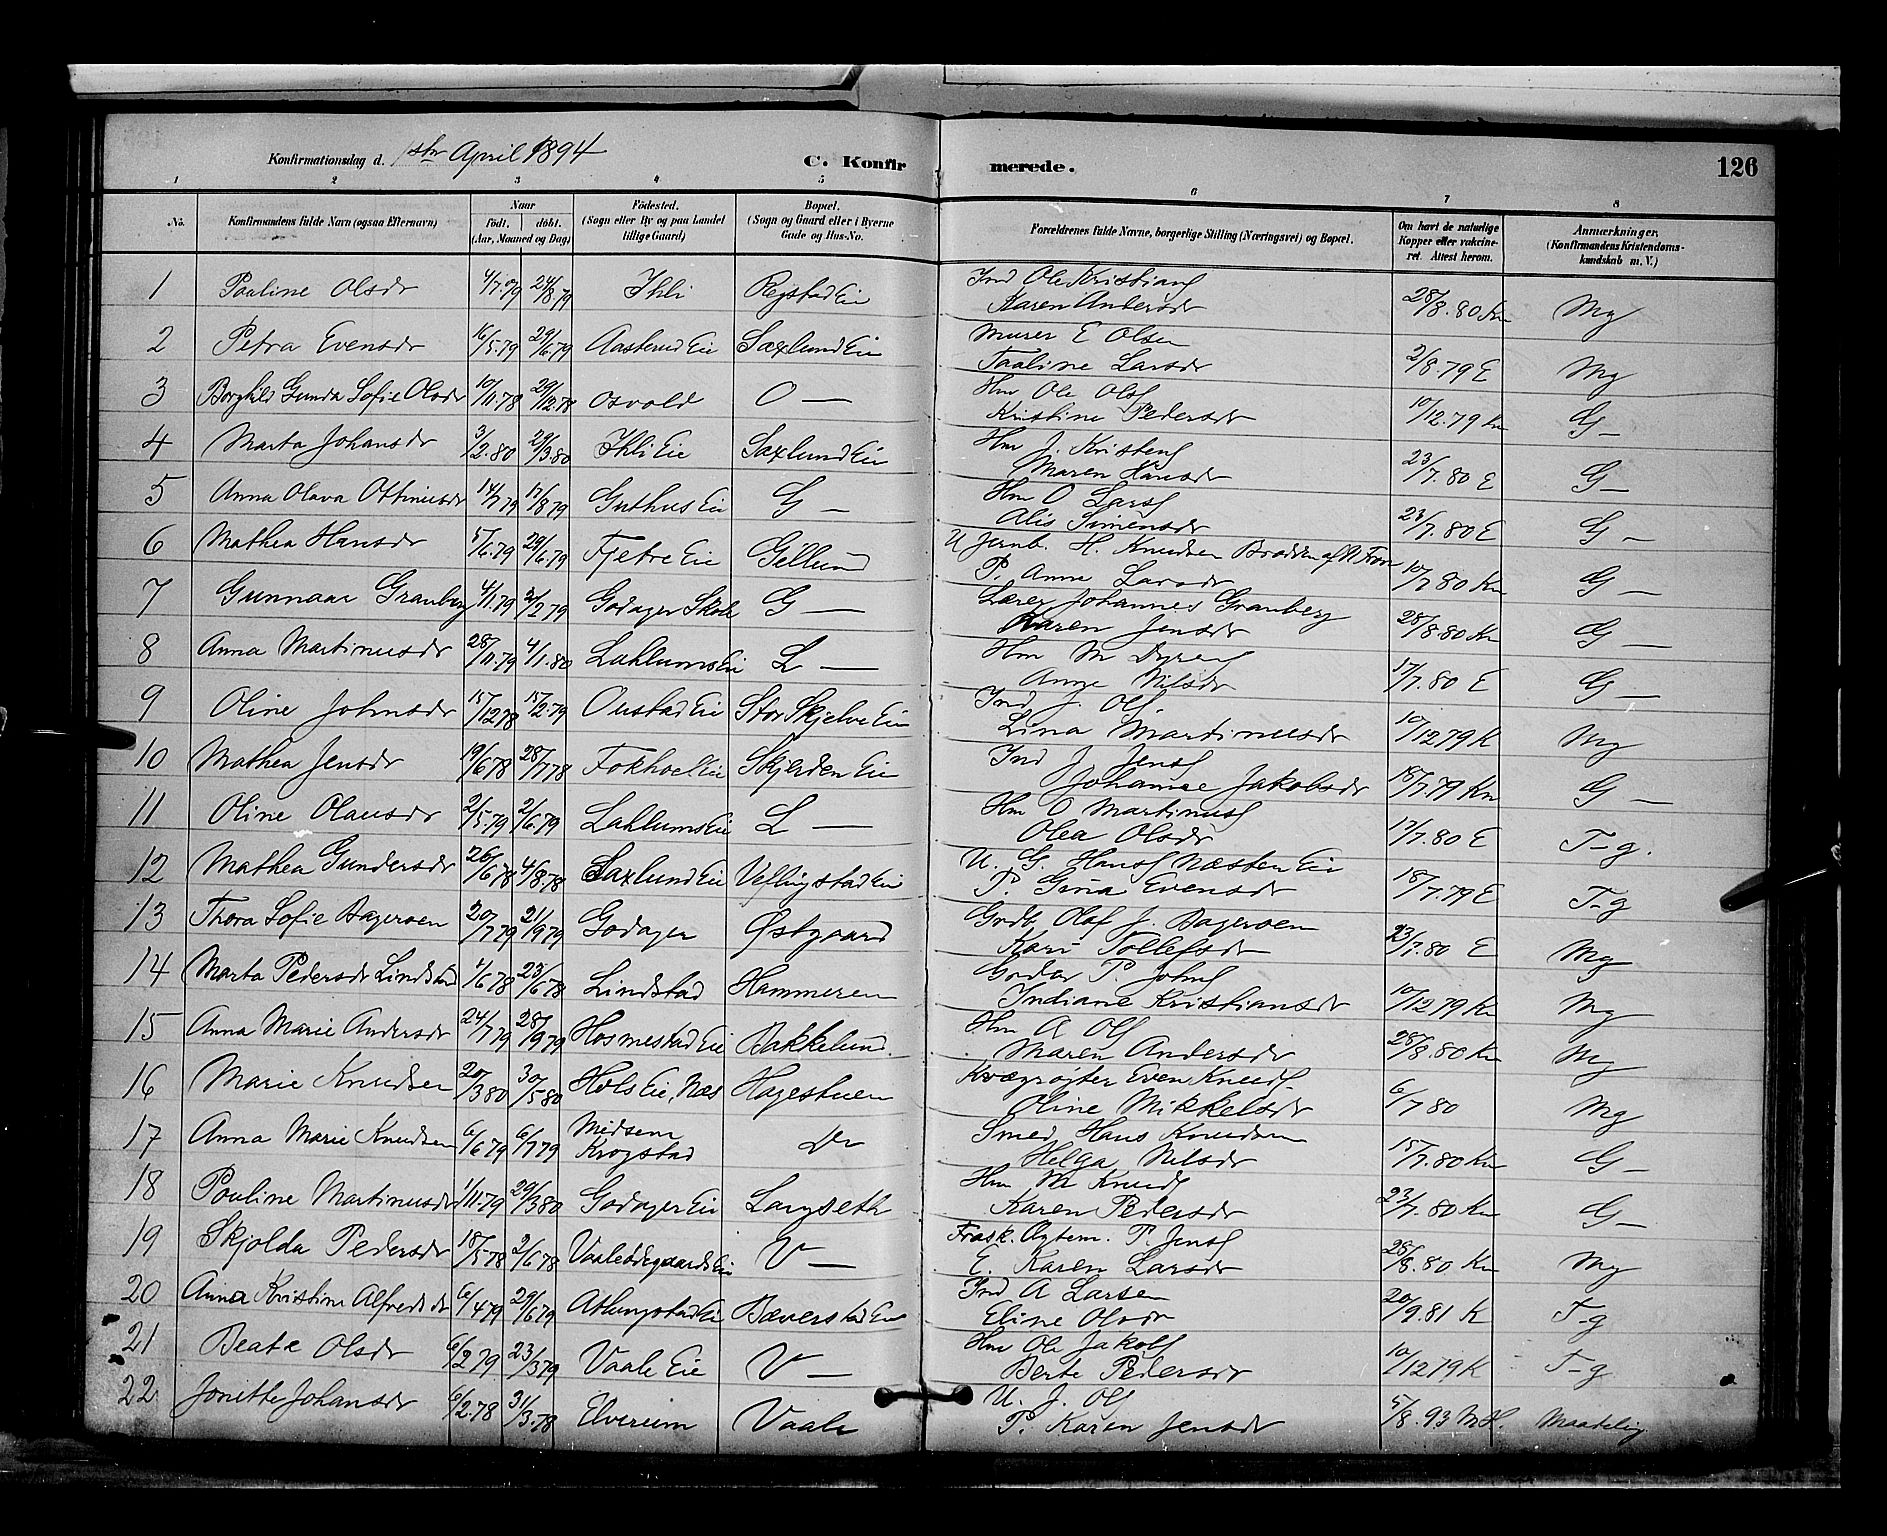 Konfirmationsdag d. 1ste April 1894
C. Konfir merede. 126
1 2 3 4 5 6 7 8
No.
Konfirmandens fulde Navn (ogsaa Efternavn)
Naar
født. døbt.
(Aar, Maaned og Dag)
Fødested.
(Sogn eller By og paa Landet
tillige Gaard)
Bopæl.
(Sogn og Gaard eller i Byerne
Gade og Hus-No.
Forældrenes fulde Navne, borgerlige Stilling (Næringsvei) og Bopæl.
Om havt de naturlige
Kopper eller vakcine-
ret. Attest herom.
Anmærkninger.
(Konfirmandens Kristendoms-
kundskab m. V.)
1 Pauline Olsdr 4/7.79 24/8.79 Ihli Ind Ole Kristians
Karen Andersdr 28/8.80 Kn Mg
2 Petra Evensdr 16/5.79 29/6.79 Aasterud Eie Saxlund Eie Murer E Olsen
Larsdr 2/8.79 E Mg
3 Borghild Gunda Sofie Olsdr 10/11.78 29/12.78 Osvold O — Hm Ole Ols
Kristine Pedersdr 10/12.79 Kn G —
4 Marta Johansdr 3/2.80 29/3.80 Ihli Eie Saxlund Eie Hm J. Kristens
Maren Hansdr 23/7.80 E G —
5 Anna Olava Ottinusdr 14/7.79 17/8.79 Guthus Eie G — Hm O Lars
Alis Simensdr 23/7.80 E G —
6 Mathea Hansdr 5/6.79 29/6.79 Fjetre Eie Gellund U Jernb. H. Knudsen
P. Anne Larsdr 10/7 80 Kn G —
7 Gunnaar Granberg 4/11.79 Godager Skole G — Lærer Johannes Granberg
Karen Jensdr 28/8.80 Kn G —
8 Anna Martinusdr 28/11.79 4/1.80 Lahlums Eie L — Hm M
Anne Nilsdr 17/7.80 E G —
9 Oline Johnsdr 15/12 78 15/2.79 Oustad Eie Stor Skjelve Eie Ind J. Ols
Lina Martinusdr 10/12 79 K Mg
10 Mathea Jensdr 19/6 78 28/7 78 Fokhol Eie Skjerden Eie Ind J Jens
Johanne Jakobsdr 18/7.79 Kn G —
11 Oline Olausdr 2/5.79 2/6.79 Lahlums Eie L — Hm O Martinus
Olea Olsdr 17/7.80 E T-g.
12 Mathea Gundersdr 26/6 78 4/8.78 Saxlund Eie Veflingstad Eie U. G. Hans Næsten Eie
P. Gina Evensdr 18/7.79 E T-g
13 Thora Sofie Bageroen 20/7 79 21/9 79 Godager Østgaard Grdb. Olaf J. Bageroen
Kari Tollefsdr 23/7.80 E Mg
14 Marta Pedersdr Lindstad 1/6 78 23/6 78 Lindstad Hammeren P. Johns
Indiane Kristiansdr 10/12 79 Kn Mg
15 Anna Marie Andersdr 24/7 79 28/9 79 Hosmestad Eie Bakkelund. Hm A Ols
Maren Andersdr 28/8.80 Kn Mg
16 Marie Knudsen 20/3 80 30/5 80 Hols Eie, Næs Hagestuen Kvægrøgter Even Knuds
Oline Mikkelsdr 6/7 80 Mg
17 Anna Marie Knudsen 6/6 79 6/7 79 Midsem
Krogstad Do Smed Hans Knudsen
Helga Nilsdr 15/7.80 Kn G —
18 Pauline Martinusdr 1/11.79 29/3 80 Godager Eie Langseth Hm M Knuds
Karen Pedersdr 23/7.80 Kn G —
19 Skjolda Pedersdr 18/5 78 2/6 78 Vaaleødegaards Eie V — Frask. P. Jens
E. Karen Larsdr 28/8. 80 Kn Mg
20 Anna Kristine Alfredsdr 6/4 79 29/6 79 Athungstad Eie Bæverstad Eie Ind A Larsen
Eline Olsdr 20/9.81 K T-g
21 Beate Olsdr 6/2 79 23/3 79 Vaale Eie V — Hm Ole Jakobs
Berte Pedersdr 10/12 79 K T-g
22 Jonette Johansdr 6/2.78 31/3.78 Elverum Vaale U. J. Ols
P. Karen Jensdr 5/8.93 M.H. Maadelig